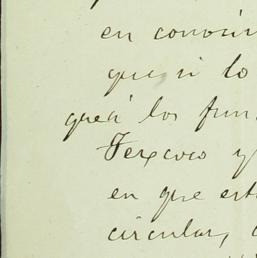 en conocim
que si lo
que á los fun
Texcoco y
en que est
circular,